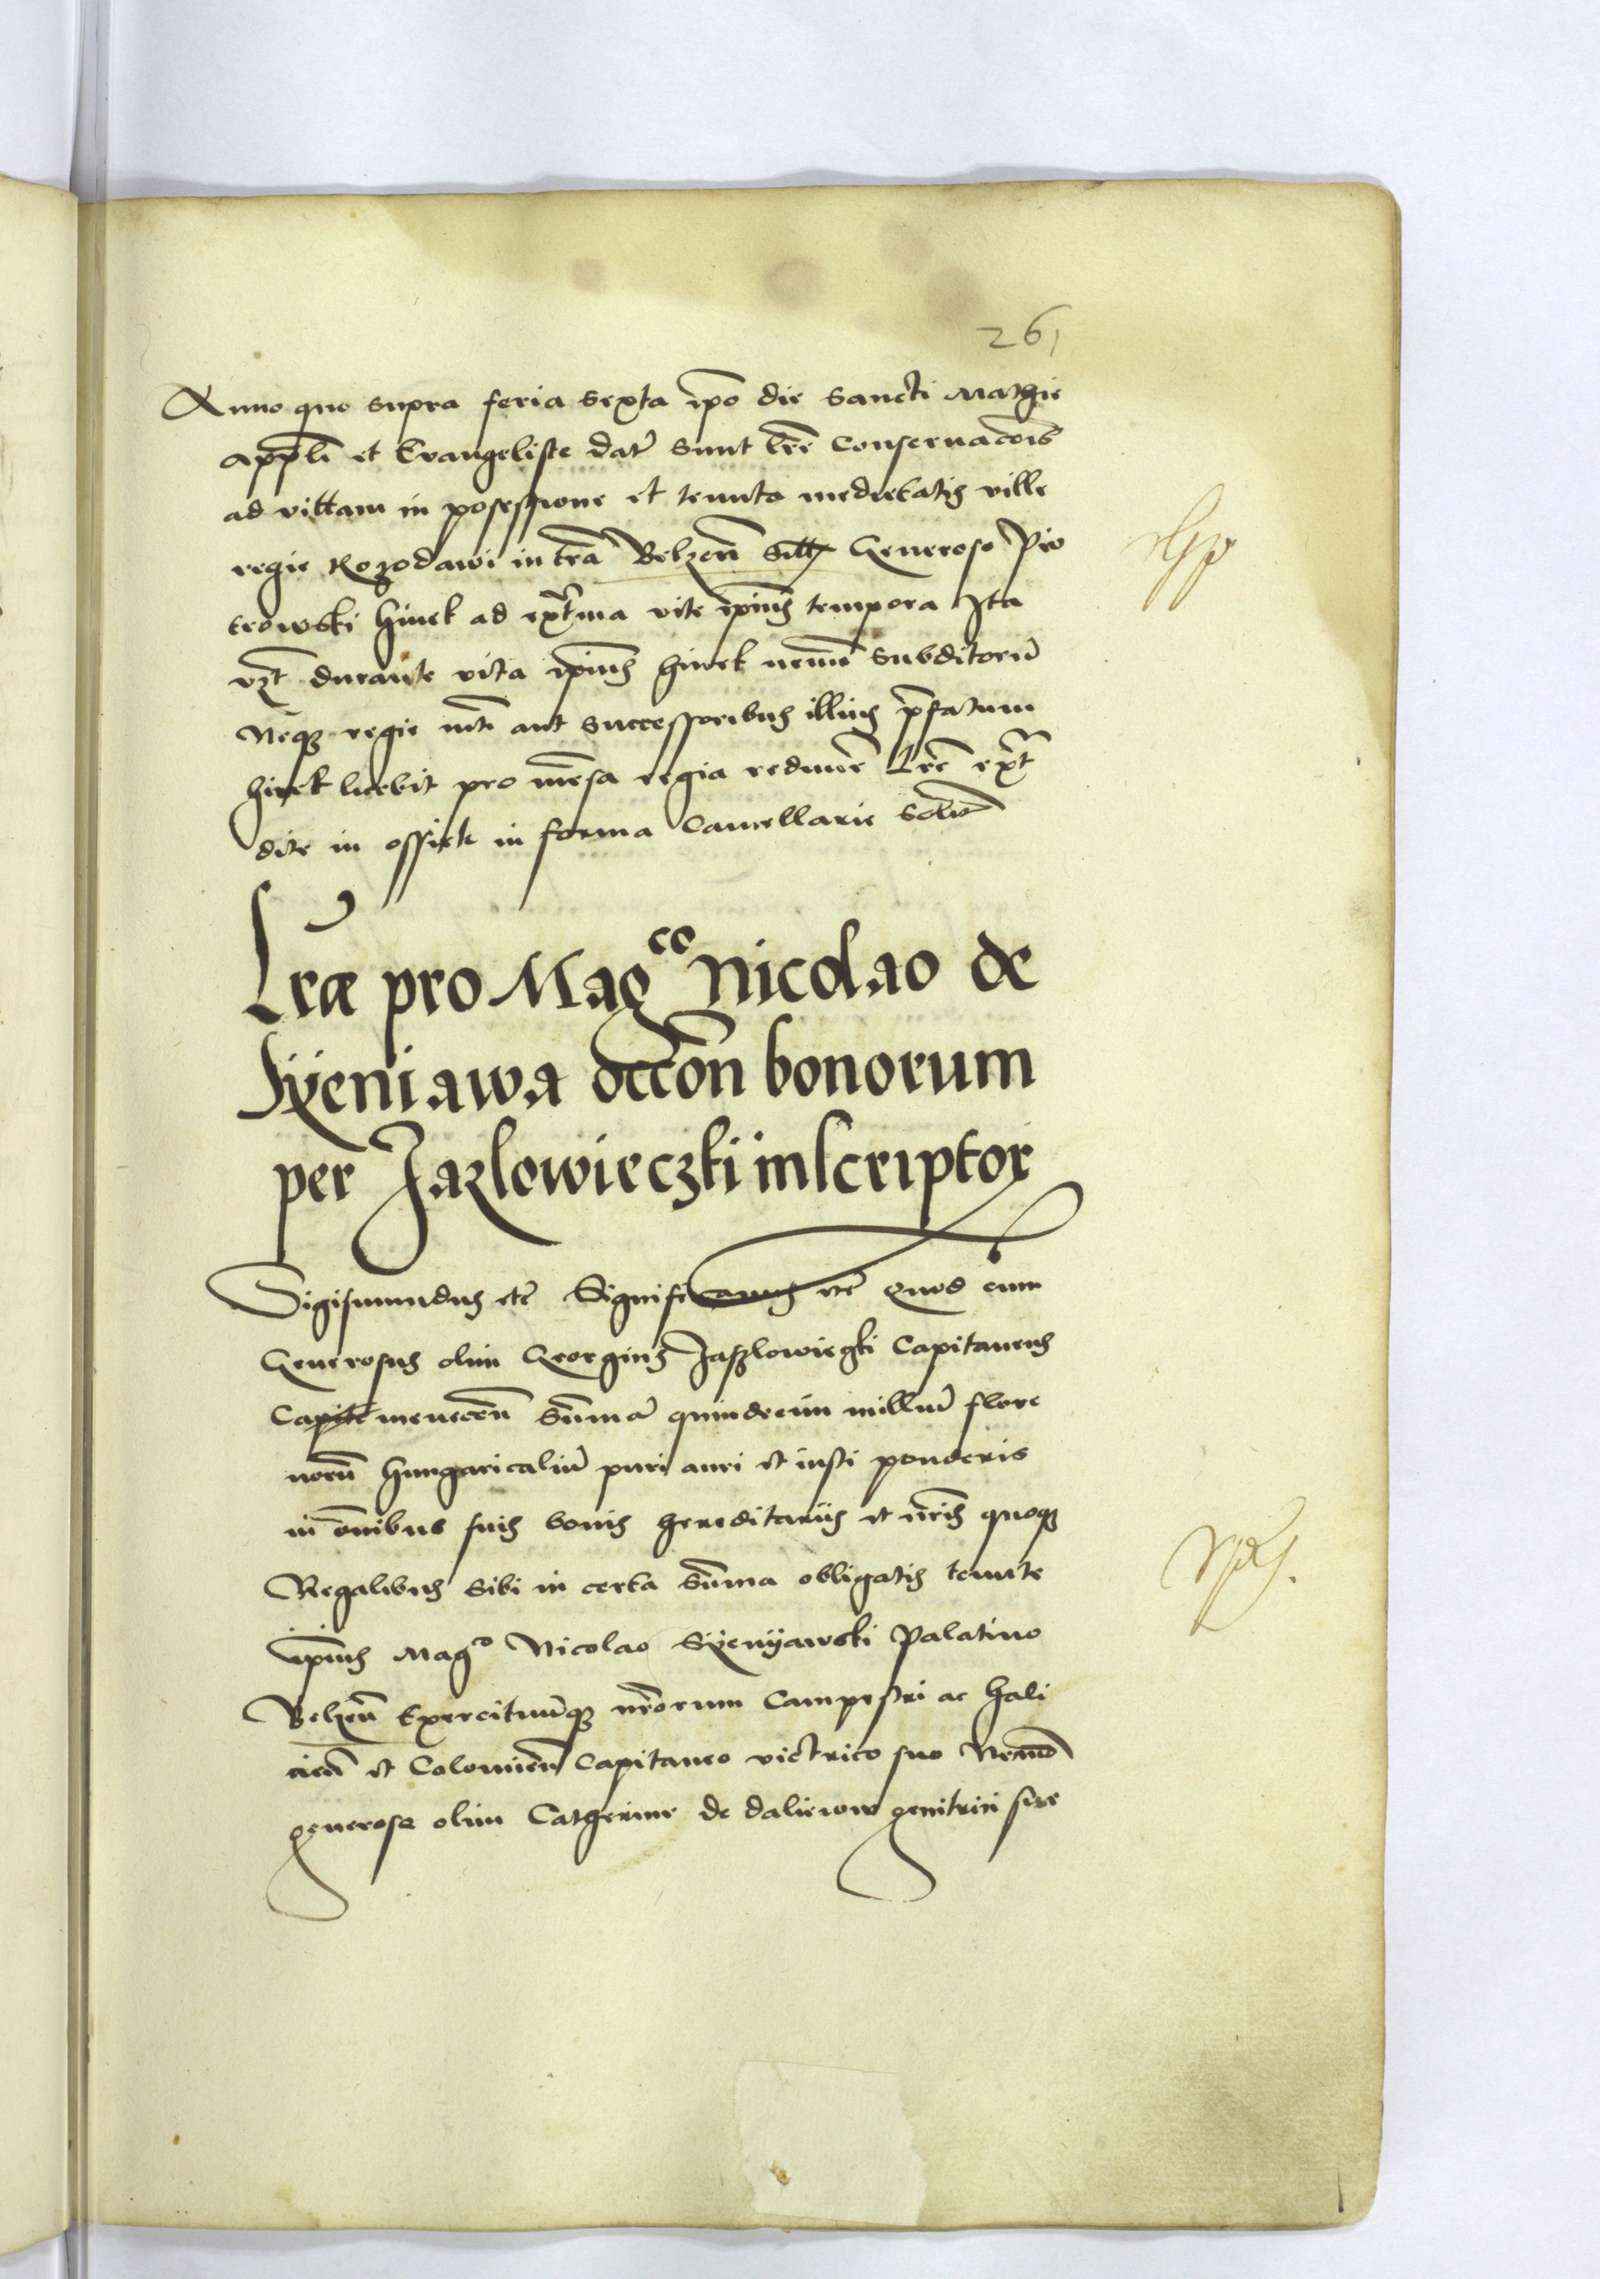 261
Anno quo supra feria sexta ipo die sancti Mathie
appli et Evangeliste date sunt lre conseruacois
ad vittam in posessione et tenuta medietatis ville
regie Rozodawi in tra Belzen Generoso Pio
trowski hinek ad extma vite ipius tempora Ita
vzt durante vita ipius hinek nemini subditoru
neq regie mti aut successoribus illius prefatum
hinek licebit pro mensa regia redimere Lre ext
dite in ossiek in forma Cancellarie solite
Lræ pro Magco Nicolao de
Syeniawa occon bonorum
per Jazlowieczki inscriptor
Sigismundus etc Significamus etc Quod cum
Generosus olim Georgius Jaslowiegki Capitaneus
Camenecen summa quindecim milliu flore
noru hungaricaliu puri auri et iusti ponderis
in omibus suis bonis hereditariis et nris quoq
Regalibus sibi in certa summa obligatis tenute
ipius Mago Nicolao Syenyawski Palatino
Belzen Exercituumq nrorum Campestri ac hali
cien et Colomien Capitaneo victrico suo Necno
generose olim Catherine de daliewo genitrici sue